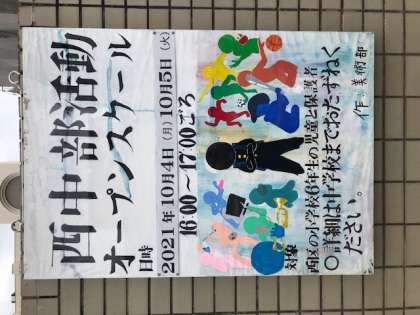 西中部活動
オープンスクール
日時
2021年10月4日(月)10月5日(火)
16:00〜17:00ごろ
対象
西区の小学校6年生の児童と保護者
○詳細は中学校までおたずねく
ださい。
作 美術部